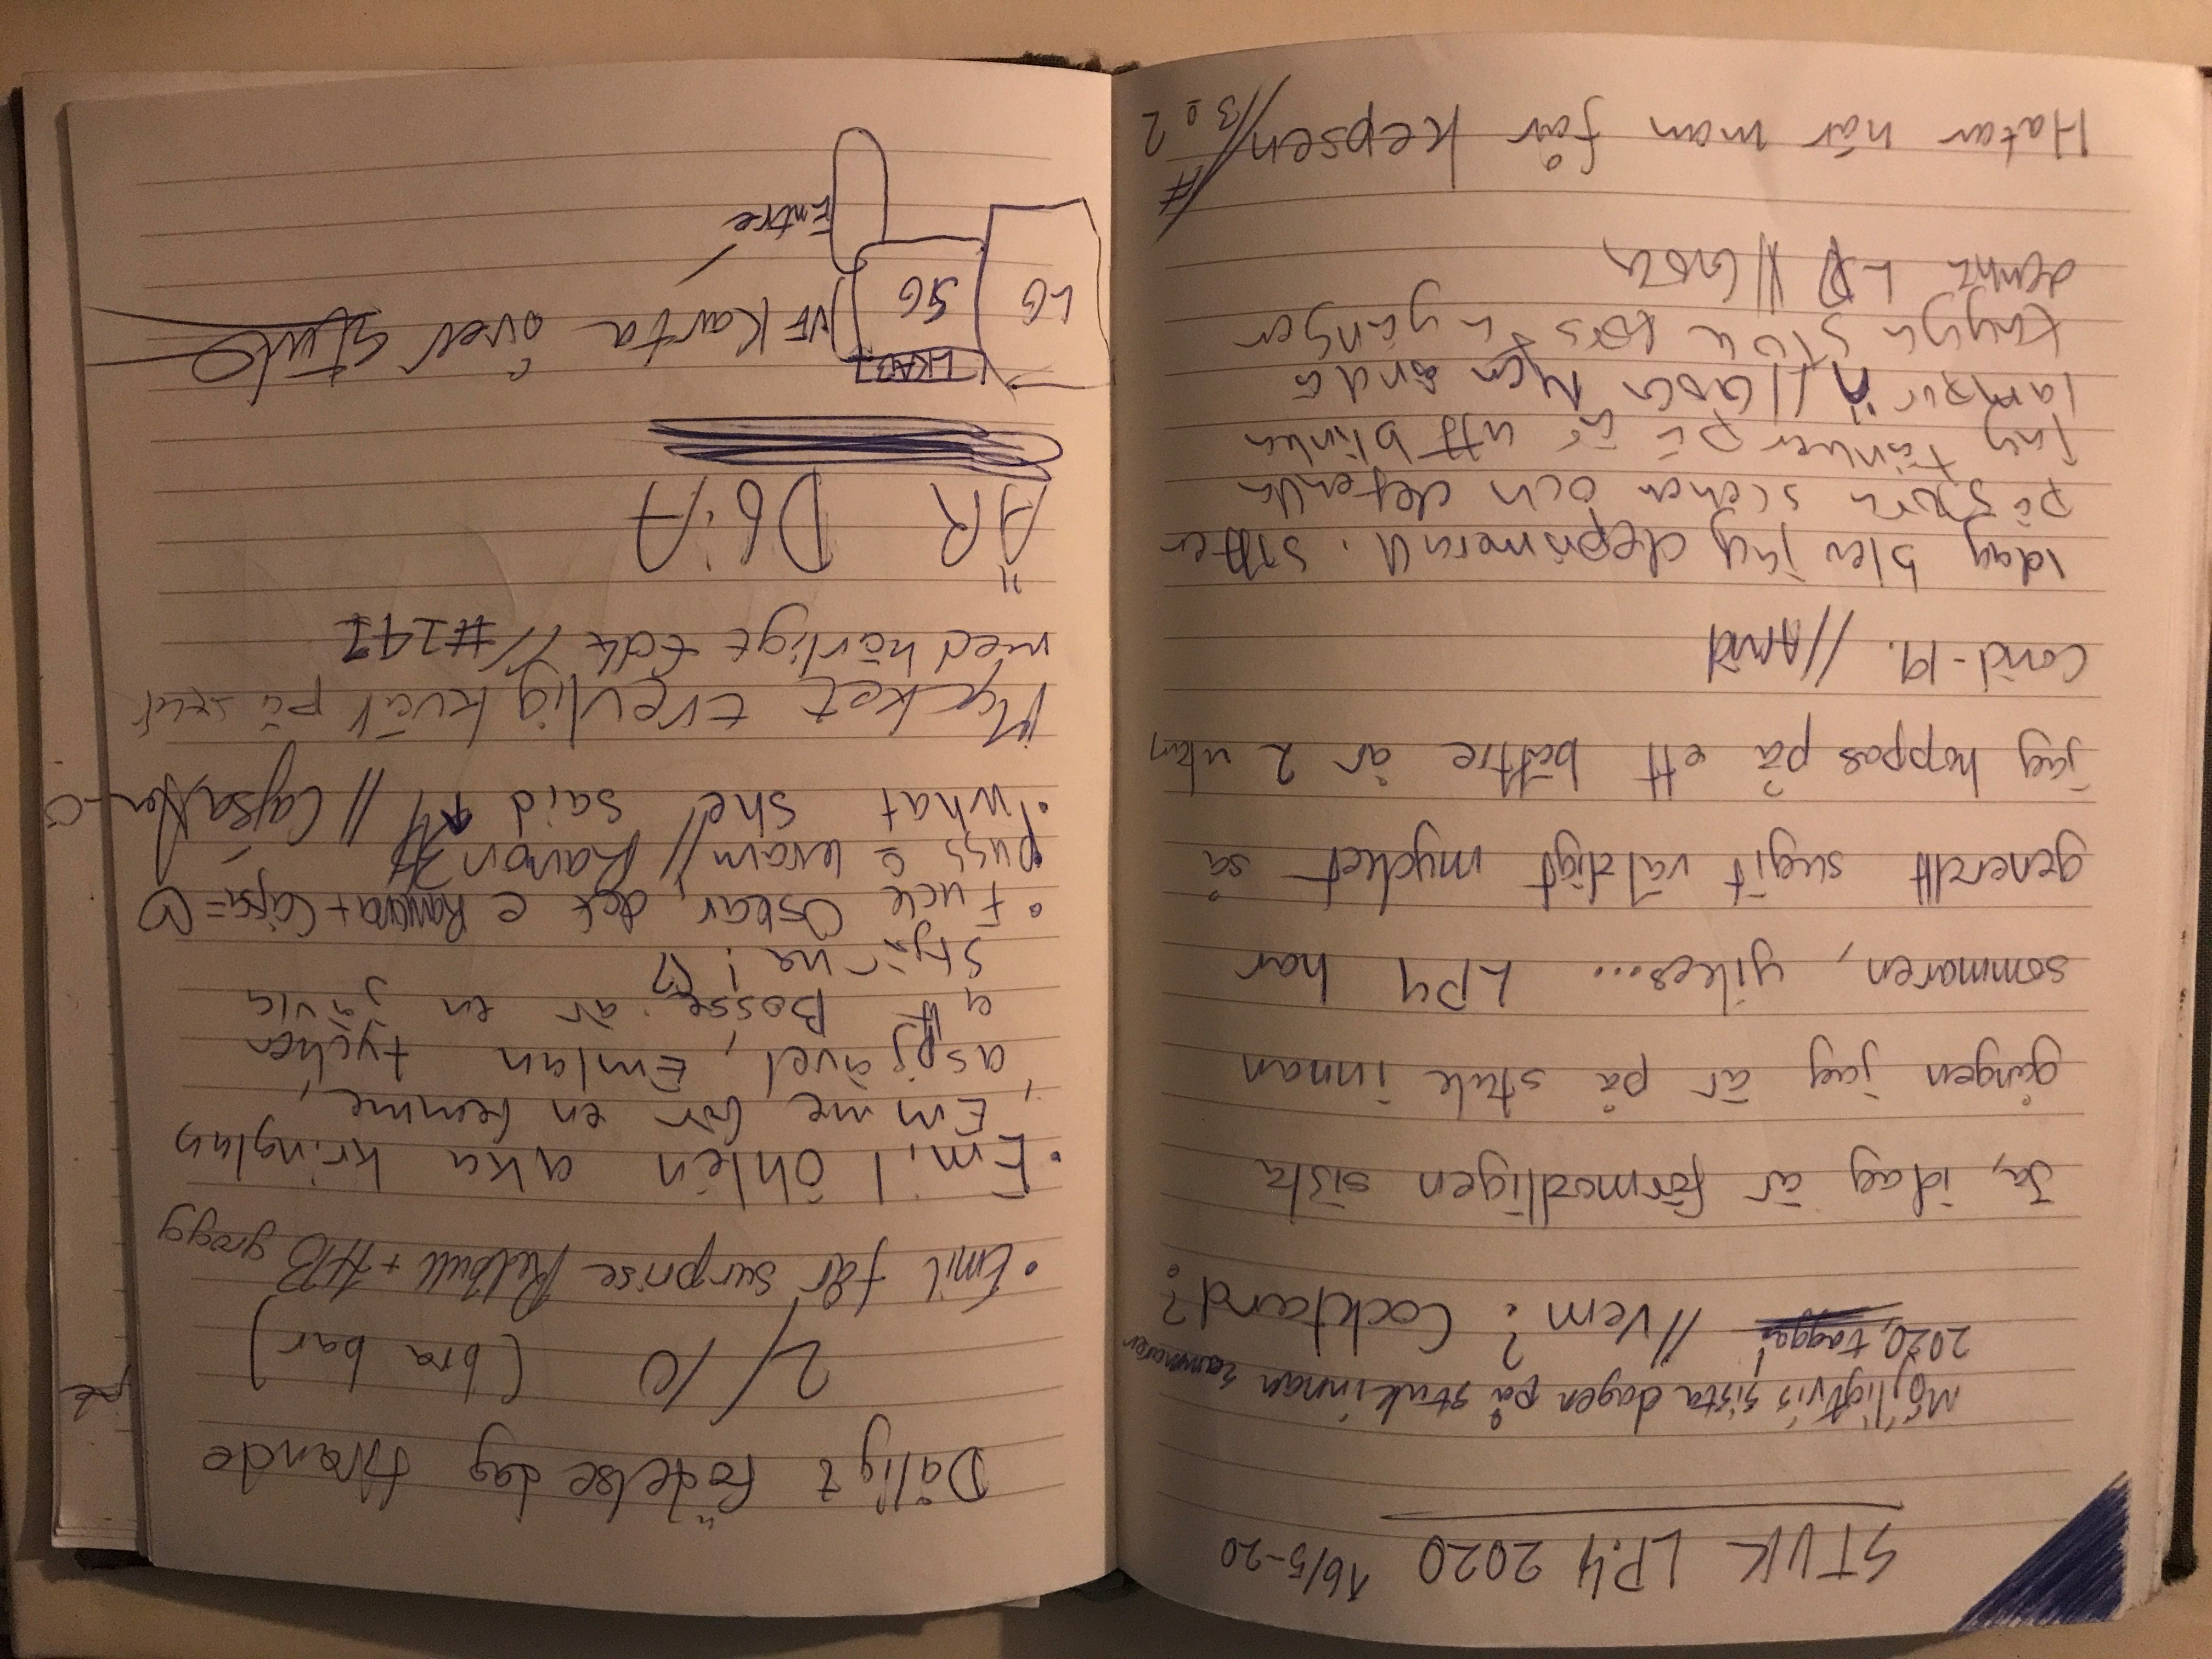 STUK LP.4 2020 16/5-20
Möjligtvis sista dagen på stuk innan sommaren
2020, tagga! //Vem? Cocktard?
Ja, idag är förmodligen sista
gången jag är på stuk innan
sommaren, yikes... LP4 har
generellt sugit väldigt mycket så
jag hoppas på ett bättre år 2 utan
Covid-19. //Arvid
Idag blev jag deprimerad. Sitter
på stora scenen och det enda
jag tänker på är att blinka
lampor // Men ändå
tagga stuk
denna LP //
Hatar när man får kepsen //
Dåligt födelsedag firande
2/10 (bra bar)
• Emil får surprise Redbull + HB grogg
• Emil Öhlén aka kringlan
Emme är en femme,
aspjävel, Emlan tycker
att Bosse är en jävla
stjärna! ♡
• Fuck Oskar, det e Ramona + Cajsa = ♡
puss o kram // Ramona
• What she said ↑ // Cajsa
Mycket trevlig kväll på stuk
med härligt folk // #141
ÄR DÖ.A
LG
SG
LKAB
NF Karta över stuk
Entré